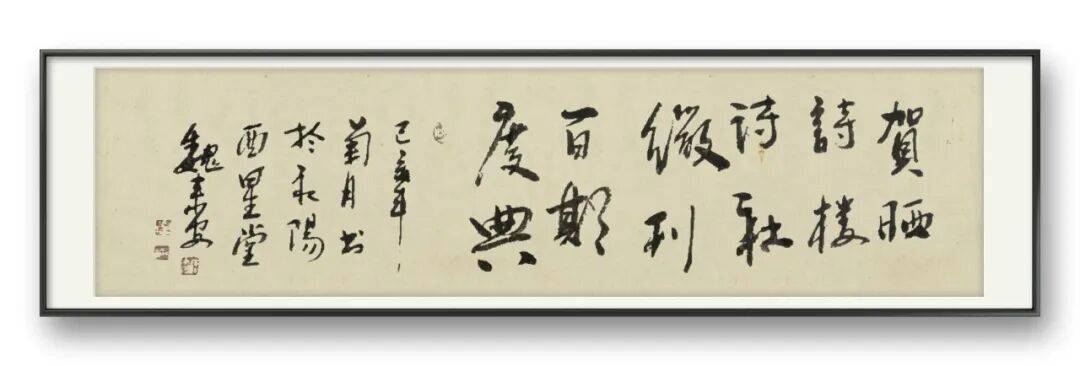 賀晒
詩樓
詩社
微刊
百期
慶典
己亥年
菊月書
於耒陽
星堂
魏安